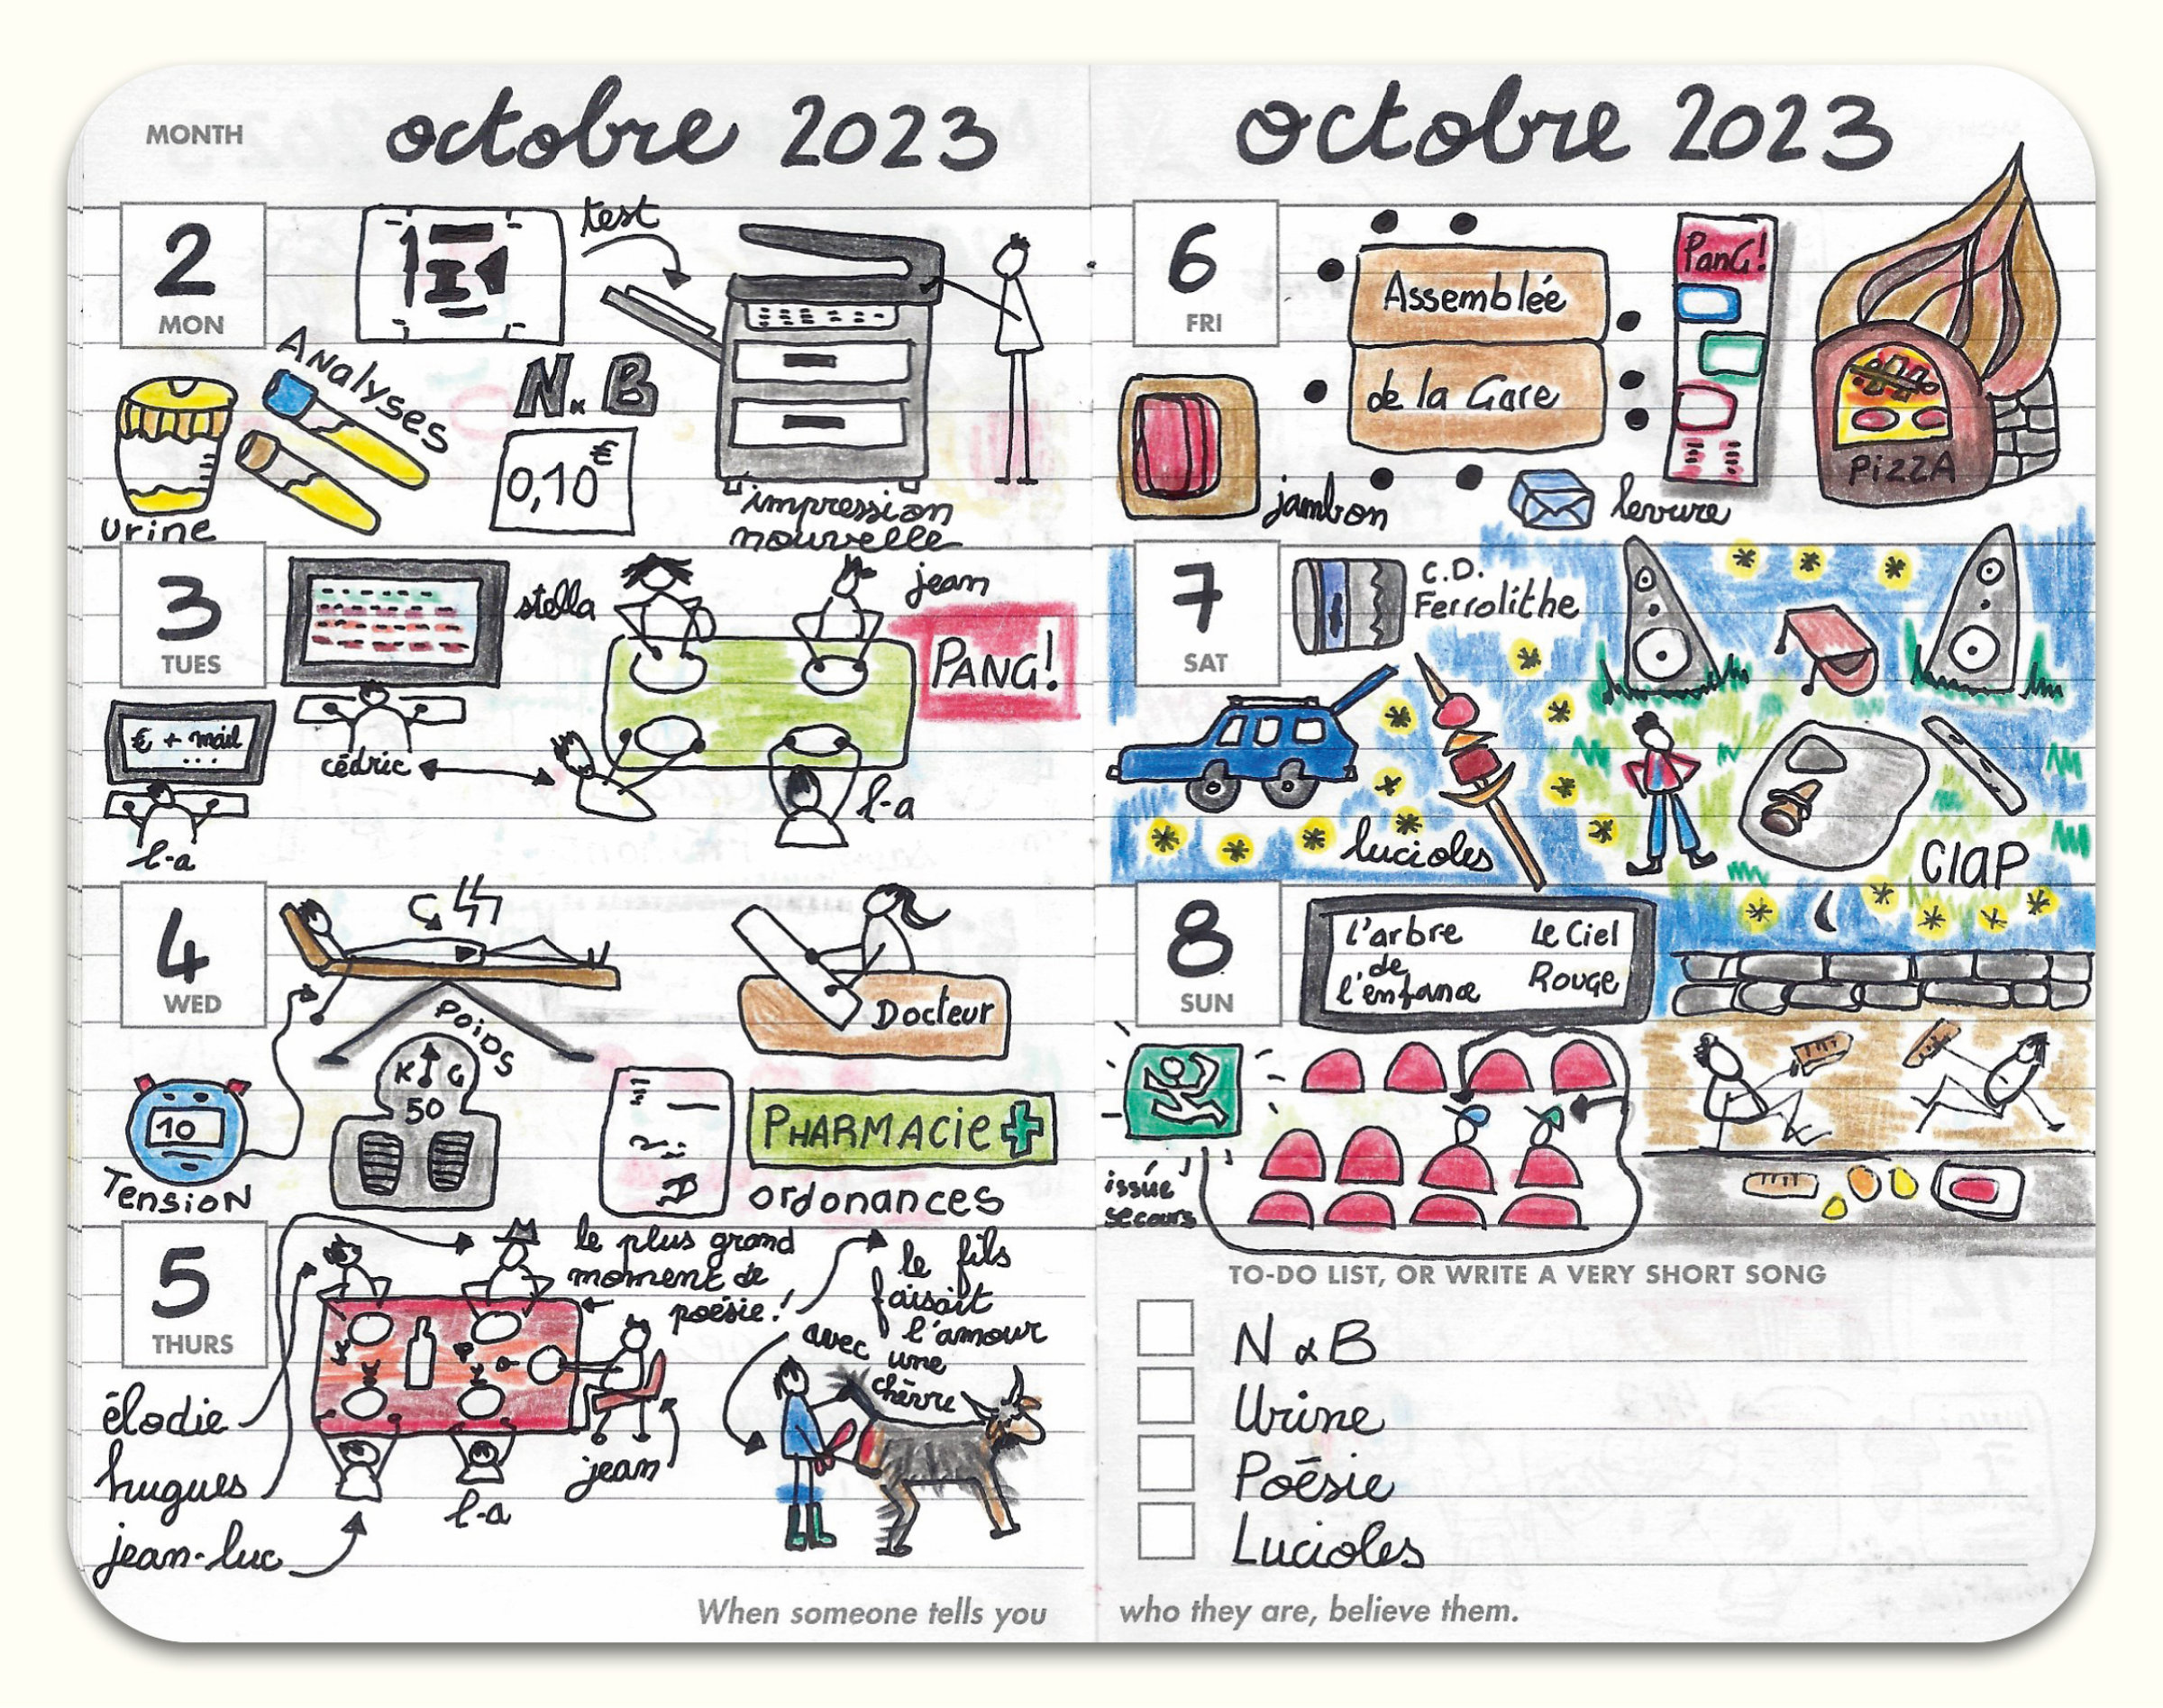 MONTH
octobre 2023
2
MON
test
Analyses
urine
N & B
0,10 €
impression
nouvelle
3
TUES
stella
jean
PANG!
€ + mail
...
l-a
cédric
l-a
4
WED
Poids
KG
50
10
Tension
Docteur
PHARMACie
ordonances
5
THURS
le plus grand
moment de
poésie!
le fils
faisait
l'amour
avec une
chèvre
élodie
hugues
jean-luc
l-a
jean
When someone tells you
octobre 2023
6
FRI
Assemblée
de la Gare
PanG!
PiZZA
jambon
levure
7
SAT
C.D.
Ferrolithe
lucioles
CLAP
8
SUN
l'arbre
de
l'enfance
Le Ciel
Rouge
issue
secours
TO-DO LIST, OR WRITE A VERY SHORT SONG
N & B
Urine
Poésie
Lucioles
who they are, believe them.